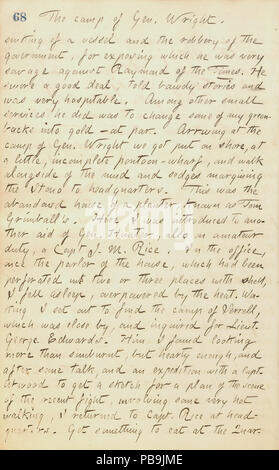 68
The camp of Gen. Wright.
sinking of a vessel and the robbery of the
government, for exposing which he was very
savage against Raymond of the Times. He
swore a good deal, told bawdy stories and
was very hospitable. Among other small
services he did was to change some of my green-
backs into gold – at par. Arriving at the
camp of Gen. Wright we got put on shore, at
a little, incomplete pontoon-wharf, and walk
alongside of the mud and sedges margining
the Stono to headquarters. This was the
abandoned house of a planter, known as Tom
Grimball's. Here I was introduced to ano-
ther aid of Gen. Hunter, also an amateur
duty, a Capt J. M. Rice. In the office,
once the parlor of the house, which had been
perforated in two or three places with shell,
I fell asleep, overpowered by the heat. Wa-
king I set out to find the camp of Serrell,
which was close by, and inquired for Lieut.
George Edwards. Him I found looking
more than sunburnt, but hearty enough, and
after some talk and an expedition with a Capt.
Atwood to get a sketch for a plan of the scene
of the recent fight, involving some very hot
walking, I returned to Capt. Rice at head-
quarters. Got something to eat at the Quar-
alamy
www.alamy.com
PB9JME